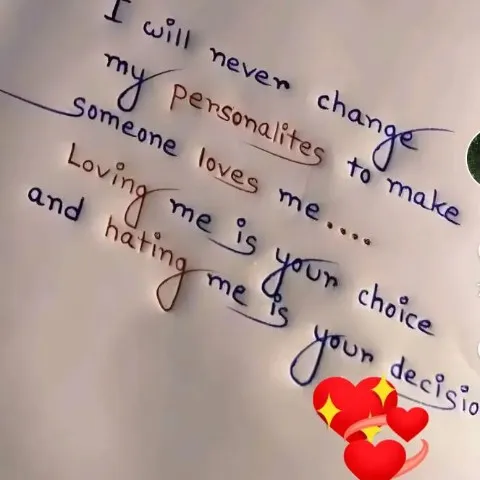 I will never change
my personalites to make
someone loves me....
Loving me is your choice
and hating me is your decisio